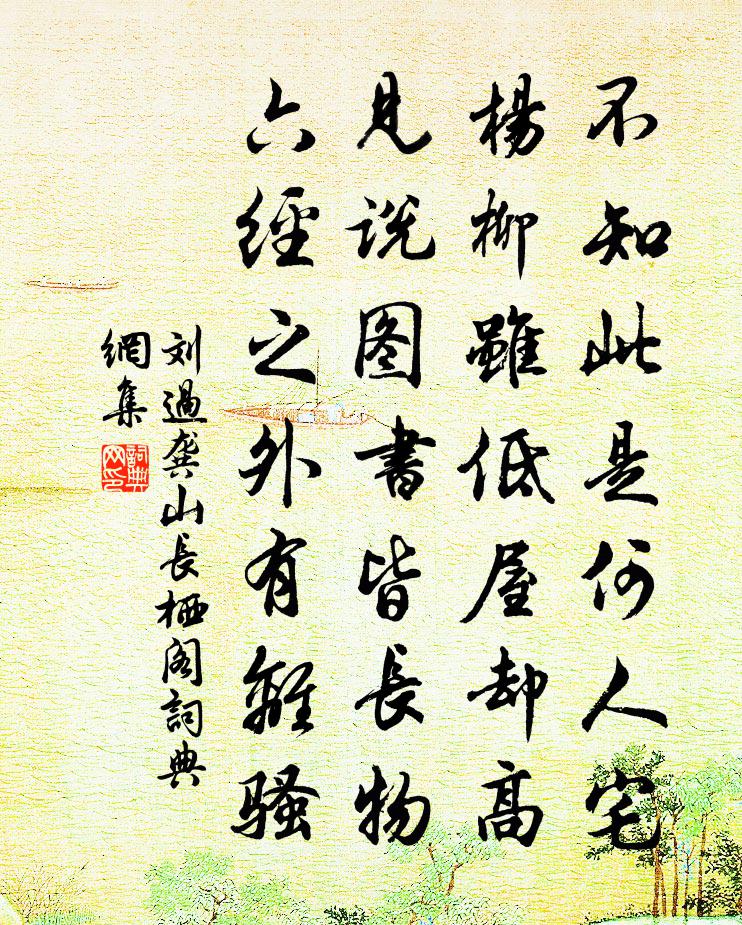 不知此是何人宅
楊柳雖低屋却高
見说图書皆長物
六經之外有離骚
刘過龚山長栖阁詞典
網集
詞典
网印